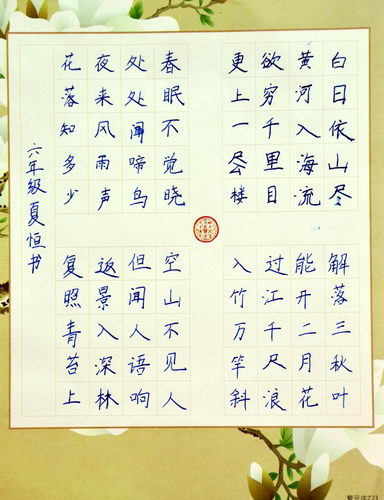 白日依山尽
黄河入海流
欲穷千里目
更上一层楼
春眠不觉晓
处处闻啼鸟
夜来风雨声
花落知多少
解落三秋叶
能开二月花
过江千尺浪
入竹万竿斜
空山不见人
但闻人语响
返景入深林
复照青苔上
六年级夏恒书